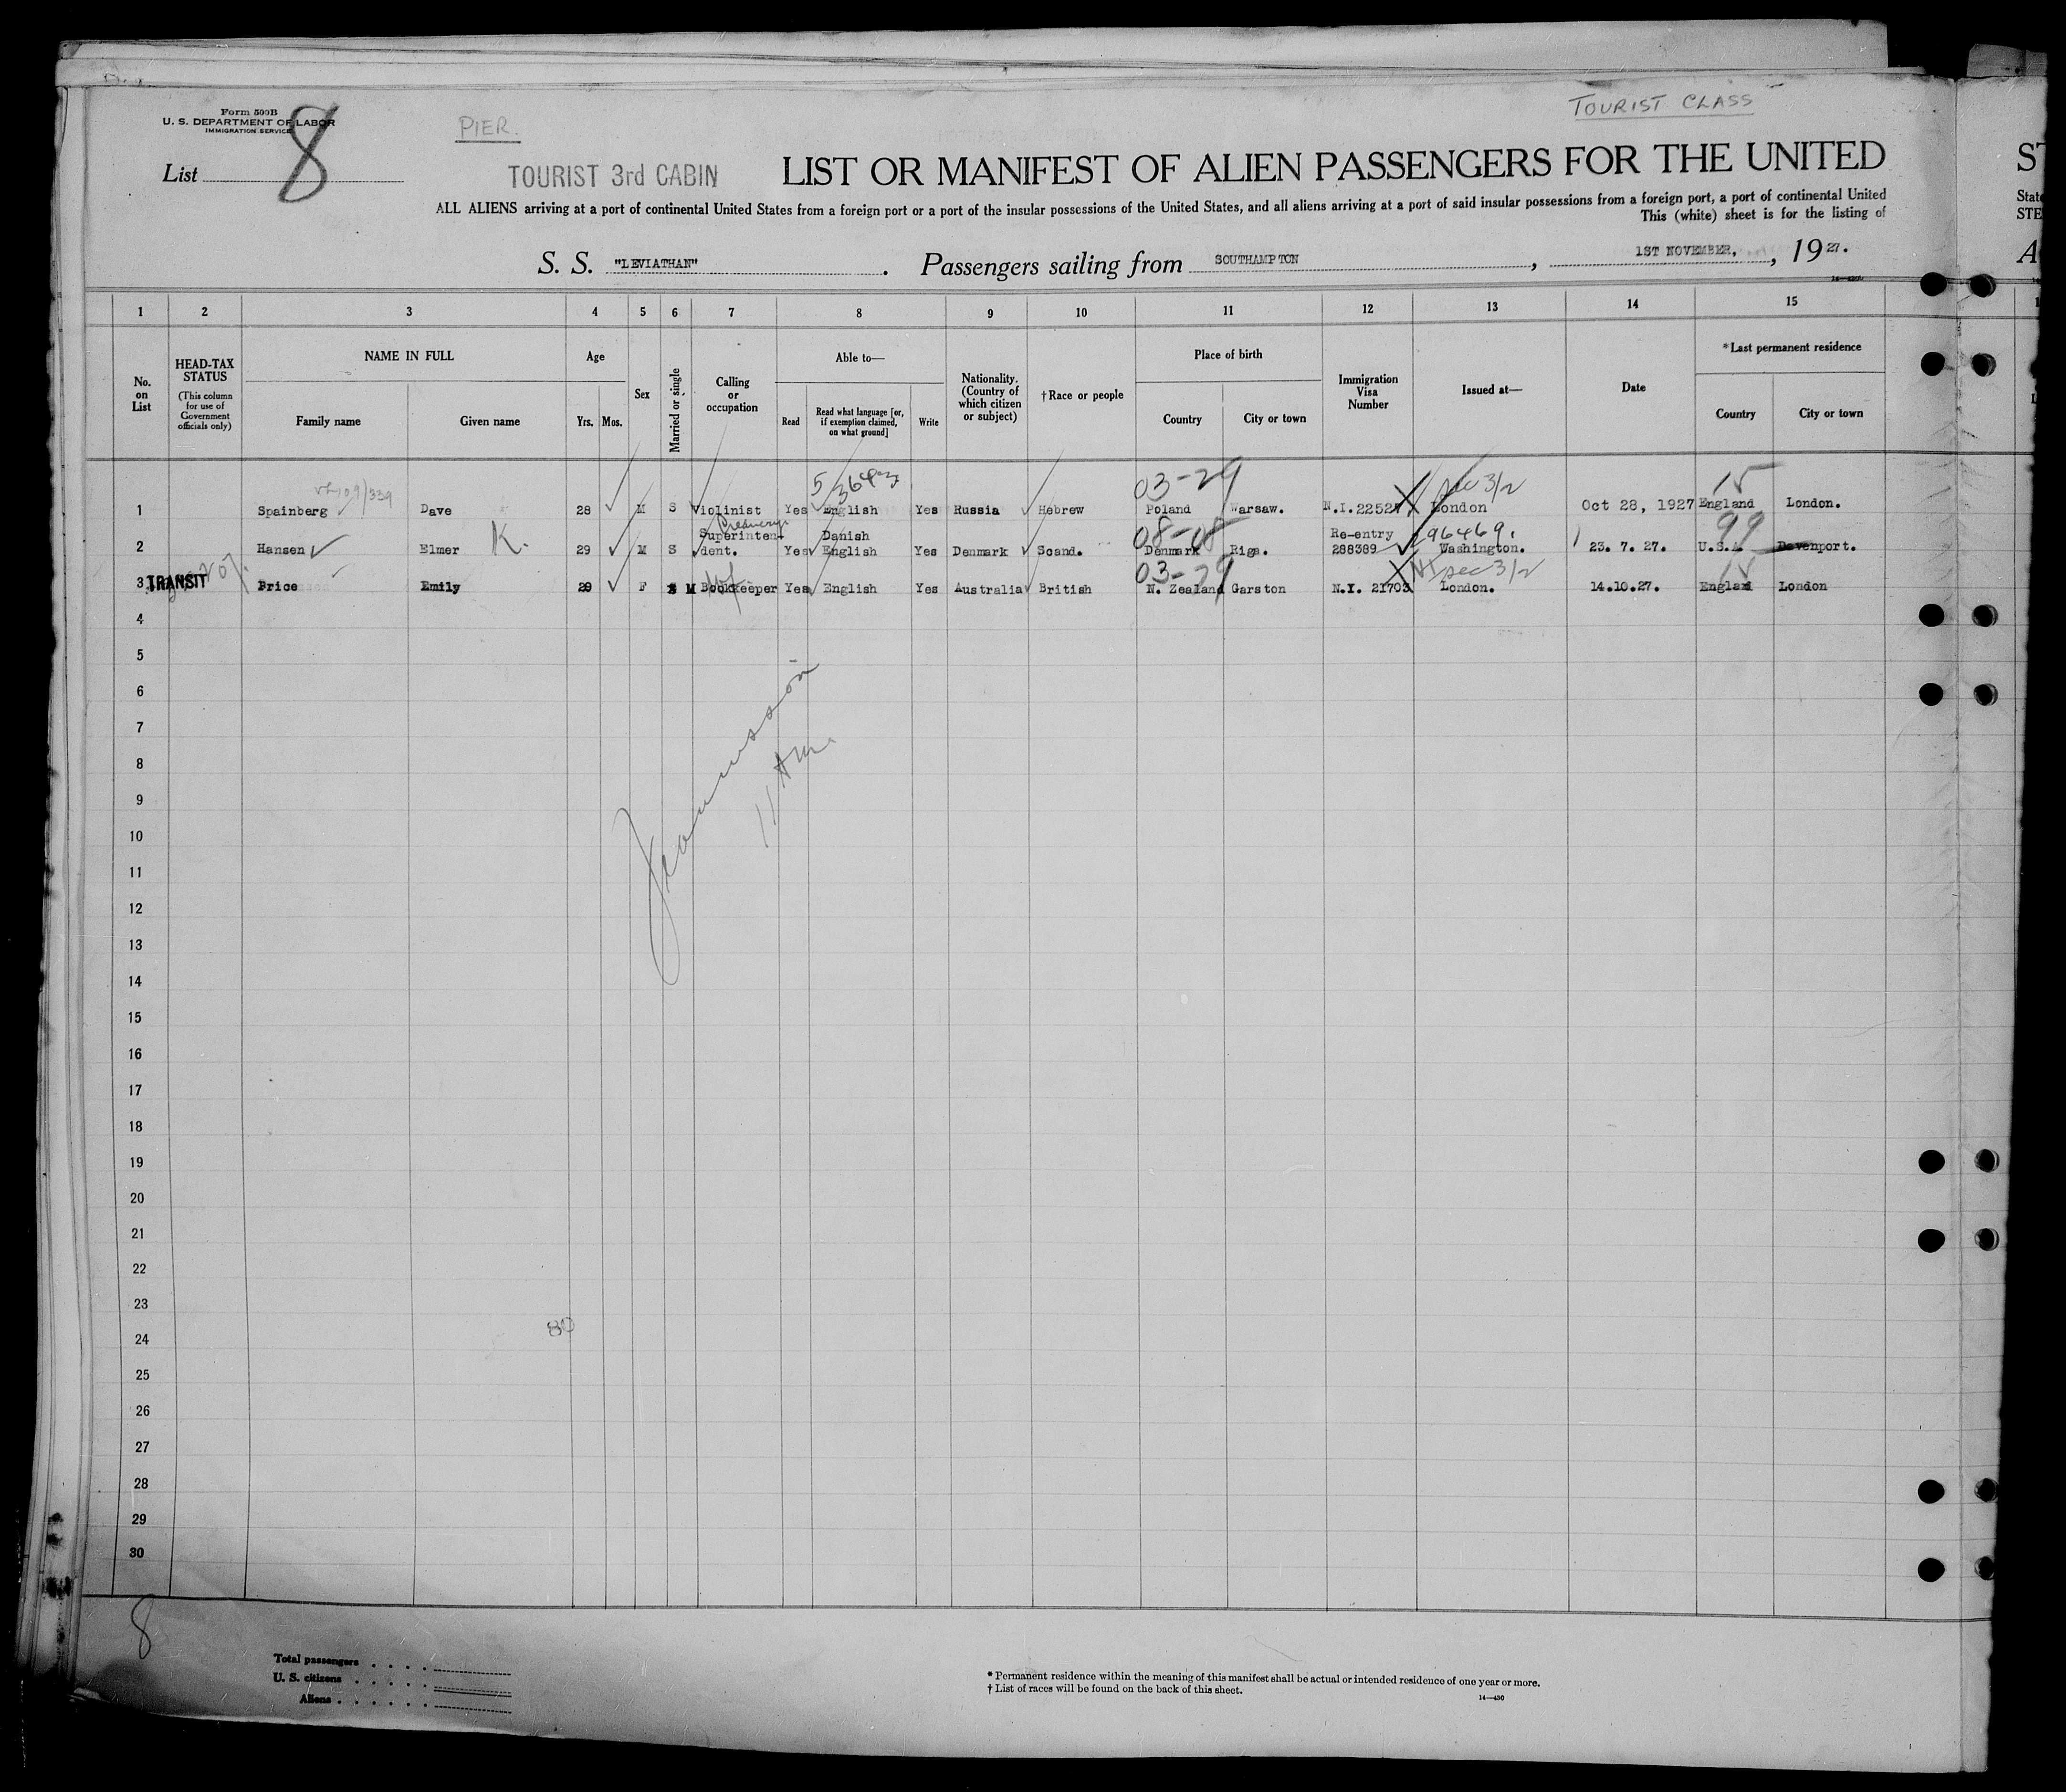 Form 500B
U. S. DEPARTMENT OF LABOR
IMMIGRATION SERVICE
List 8
PIER.
TOURIST CLASS
TOURIST 3rd CABIN
LIST OR MANIFEST OF ALIEN PASSENGERS FOR THE UNITED
ALL ALIENS arriving at a port of continental United States from a foreign port or a port of the insular possessions of the United States, and all aliens arriving at a port of said insular possessions from a foreign port, a port of continental United
This (white) sheet is for the listing of
S. S. "LEVIATHAN". Passengers sailing from SOUTHAMPTON, 1ST NOVEMBER, 1927.
ST
State
STE
A
1 2 3 4 5 6 7 8 9 10 11 12 13 14 15
No. on List
HEAD-TAX STATUS
(This column for use of Government officials only)
NAME IN FULL
Family name
Given name
Age
Yrs. Mos.
Sex
Married or single
Calling or occupation
Able to—
Read
Read what language [or, if exemption claimed, on what ground]
Write
Nationality. (Country of which citizen or subject)
†Race or people
Place of birth
Country
City or town
Immigration Visa Number
Issued at—
Date
*Last permanent residence
Country
City or town
03-29 15
1 Spainberg Dave 28 M S Violinist Yes English Yes Russia Hebrew Poland Warsaw. N.I.22527 London Oct 28, 1927 England London.
Creamery Superinten- Danish 08-08 Re-entry 96469. 99
2 Hansen Elmer K. 29 M S dent. Yes English Yes Denmark Scand. Denmark Riga. 288389 Washington. 23. 7. 27. U.S.A. Davenport.
03-29 15
3 TRANSIT Price Emily 29 F M Bookkeeper Yes English Yes Australia British N. Zealand Garston N.I. 21703 London. 14.10.27. England London
4
5
6
7
8
9
10
11
12
13
14
15
16
17
18
19
20
21
22
23
80
24
25
26
27
28
29
30
8
Total passengers
U. S. citizens
Aliens
* Permanent residence within the meaning of this manifest shall be actual or intended residence of one year or more.
† List of races will be found on the back of this sheet.
14—430